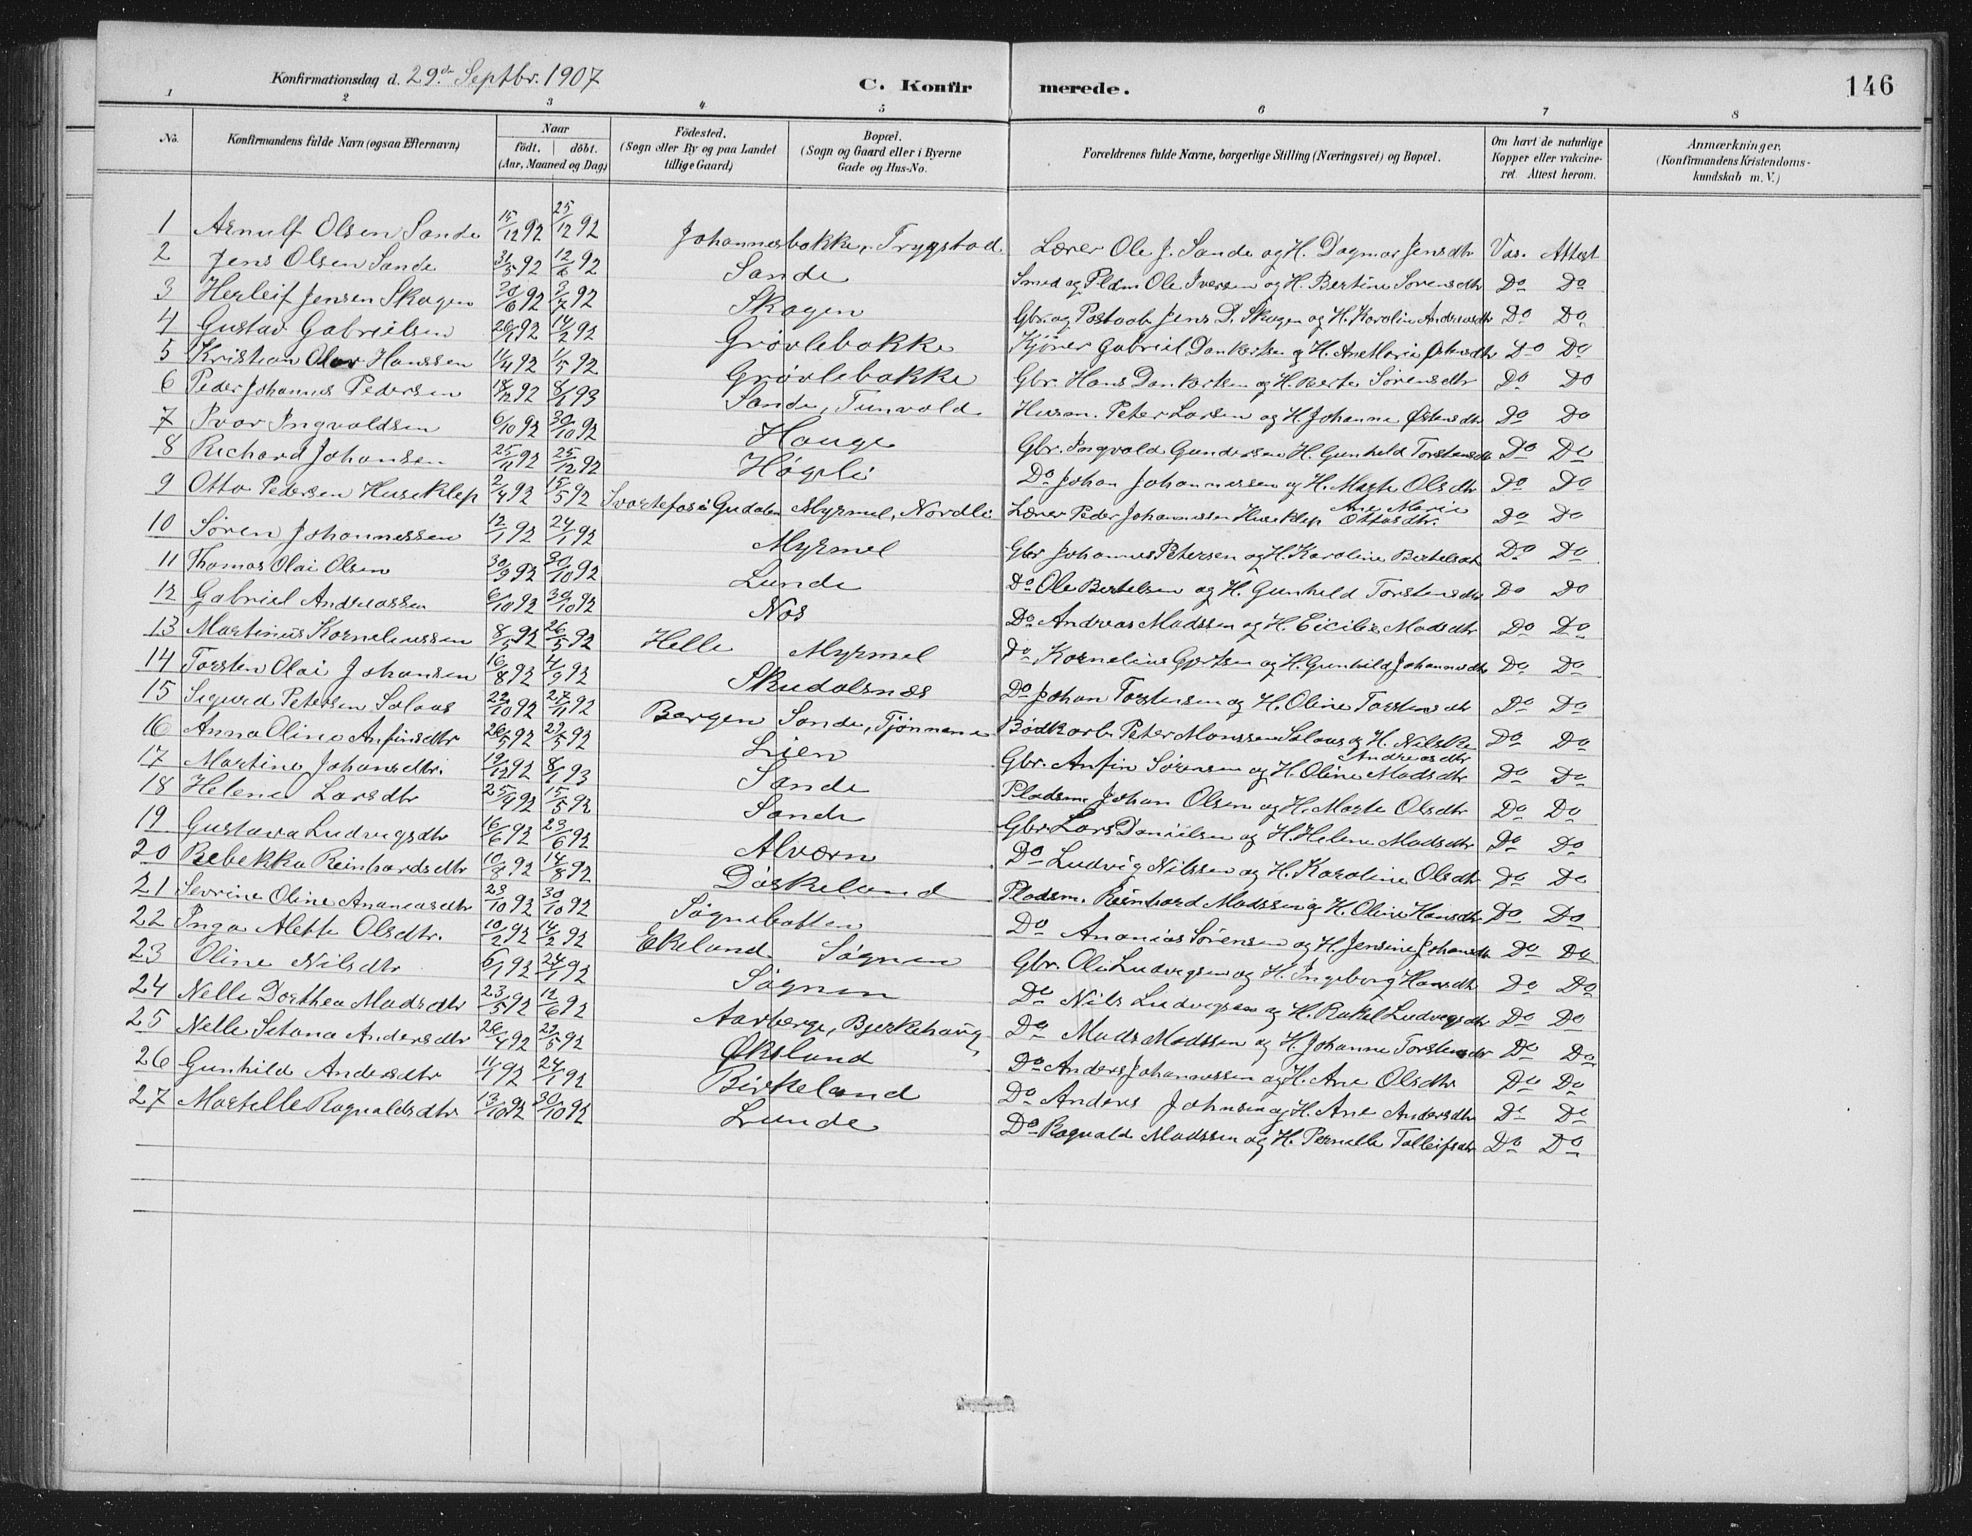 Konfirmationsdag d. 29de Septbr. 1907 C. Konfirmerede. 146
1 2 3 4 5 6 7 8
No. Konfirmandens fulde Navn (ogsaa Efternavn) Naar födt. döbt. (Aar, Maaned og Dag) Födested. (Sogn eller By og paa Landet tillige Gaard) Bopæl. (Sogn og Gaard eller i Byerne Gade og Hus-No. Forældrenes fulde Navne, borgerlige Stilling (Næringsvei) og Bopæl. Om havt de naturlige Kopper eller vakcineret. Attest herom. Anmærkninger. (Konfirmandens Kristendomskundskab m. V.)
1 Arnulf Olsen Sande 15/12 92 25/12 92 Johannesbakke, Trygstad Lærer Ole J. Sande og H. Dagmar Jensdtr Vac. Attest
2 Jens Olsen Sande 31/5 92 12/6 92 Sande Smed og Pldm Ole Iversen og H. Bertine Sörensdtr Do Do
3 Herleif Jensen Skogen 20/6 92 3/7 92 Skogen Gbr. og Postaab. Jens D. Skogen og H. Karolin Andreasdtr Do Do
4 Gustav Gabrielsen 26/1 92 14/2 92 Grøvlebakke Kjörer Gabriel Dankertsen og H. Ane Marie Do Do
5 Kristian Olav Hanssen 11/4 92 1/5 92 Grøvlebakke Gbr. Hans Dankertsen og H. Berte Sørensdtr Do Do
6 Peder Johannes Pedersen 18/12 92 8/1 93 Sande, Tunvold Husm. Peter Larsen og H. Johanne Østensdtr Do Do
7 Ivar Ingvaldsen 6/10 92 30/10 92 Hauge Gbr. Ingvald Gundersen H. Gunhild Torstensdtr Do Do
8 Richard Johansen 25/11 92 25/12 92 Høgeli Do Johan Johannessen og H. Marte Olsdtr Do Do
9 Otto Pedersen Huseklep 2/4 92 15/5 92 Svartefos i Guddalen Myrmel, Nordli Lærer Peder Johannessen Huseklep Ane Marie Ottosdtr. Do Do
10 Søren Johannessen 12/1 92 24/1 92 Myrmel Gbr Johannes Petersen og H. Karoline Bertelsdt Do Do
11 Thomas Olai Olsen 30/9 92 30/10 92 Lunde Do Ole Bertelsen og H. Gunhild Torstensdtr Do Do
12 Gabriel Andreassen 6/10 92 30/10 92 Nos Do Andreas Madssen og H. Cicilie Madsdtr Do Do
13 Martinus Korneliussen 8/5 92 26/5 92 Helle Myrmel Do Kornelius Gjertsen og H. Gunhild Johannesdtr Do Do
14 Torsten Olai Johansen 16/8 92 4/9 92 Skudalsnæs Do Johan Torstensen og H. Oline Torstensdtr Do Do
15 Sigurd Petersen Solaas 22/10 92 27/11 92 Bergen Sande, Tjønnane Bødkerarb. Peter Monssen Solaas og H. Nilske Andreasdtr Do Do
16 Anna Oline Anfinsdtr 26/5 92 29/5 92 Lien Gbr. Anfin Sörensen og H. Oline Madsdtr Do Do
17 Martine Johansdtr. 19/12 92 8/1 93 Sande Pladsm. Johan Olsen og H. Marte Olsdtr Do Do
18 Helene Larsdtr 25/4 92 15/5 92 Sande Gbr. Lars Danielsen og H. Helene Madsdtr Do Do
19 Gustava Ludvigsdtr 16/6 92 29/6 92 Alværn Do Ludvig Nilssen og H. Karoline Olsdtr Do Do
20 Rebekka Reinhardsdtr 10/8 92 14/8 92 Döskeland Pladsm. Reinhard Madssen og H. Oline Hansdtr Do Do
21 Sevrine Oline Ananiasdtr 23/10 92 30/10 92 Søgnebotten Do Ananias Sørensen og H. Jensine Johansdtr Do Do
22 Inga Alette Olsdtr. 10/2 92 14/2 92 Ekeland Søgnen Gbr. Ole Ludvigsen og H. Ingeborg Hansdtr Do Do
23 Oline Nilsdtr 6/1 92 24/1 92 Søgnen Do Nils Ludvigsen og H. Rakel Ludvigsdtr Do Do
24 Nelle Dorthea Madsdtr 23/5 92 12/6 92 Aarberge, Bjerkehaug Do Mads Madssen og H. Johanne Torstensdtr Do Do
25 Nelle Setana Andersdtr 26/4 92 29/5 92 Øksland Do Anders Johannessen og H. Ane Olsdtr Do Do
26 Gunhild Andersdtr 11/1 92 24/1 92 Birkeland Do Anders Johnsen og H. Ane Andersdtr Do Do
27 Martelle Ragnvaldsdtr 13/10 92 30/10 92 Lunde Do Ragnvald Madssen og H. Pernille Tolleifsdtr Do Do